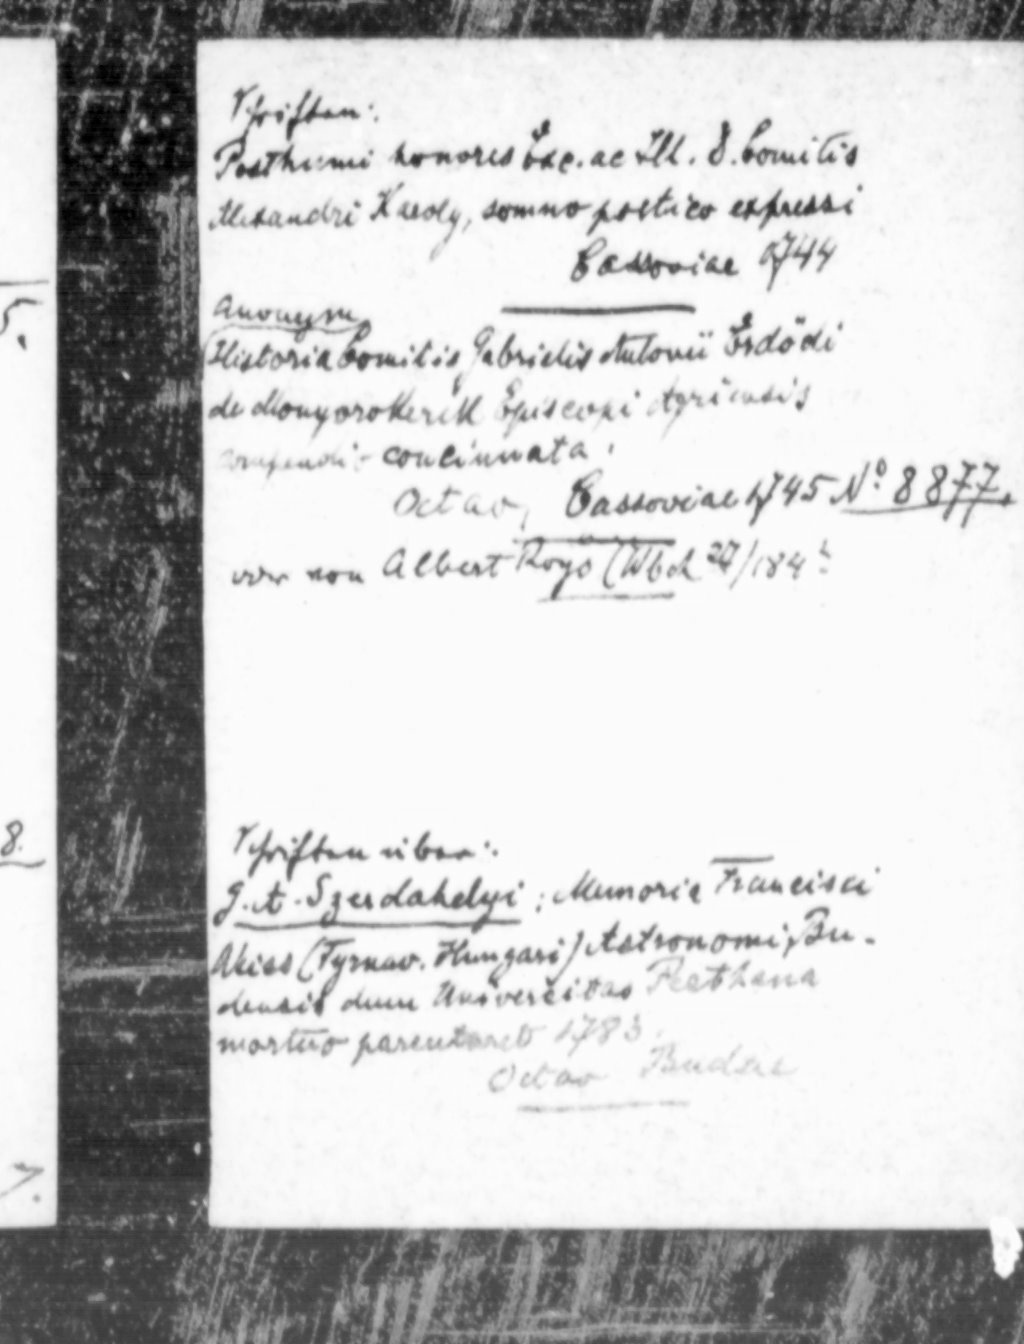 5.
8.
7.
Schriften:
Posthumi honores Exc. ac Ill. D. Comitis
Alexandri Karoly, somno poetico expressi
Cassoviae 1744
Anonym
Historia Comitis Gabrielis Antonii Erdödi
de Monyorokerek Episcopi Agriensis
compendio concinnata.
Octav, Cassoviae 1745 No. 8877.
von Albert
Schriften über:
G. A. Szerdahelyi: Memoria Francisci
Weiss (Tyrnav. Hungari) Astronomi Bu-
densis dum Universitas Pesthana
mortuo parentaret 1785.
Octav Budae